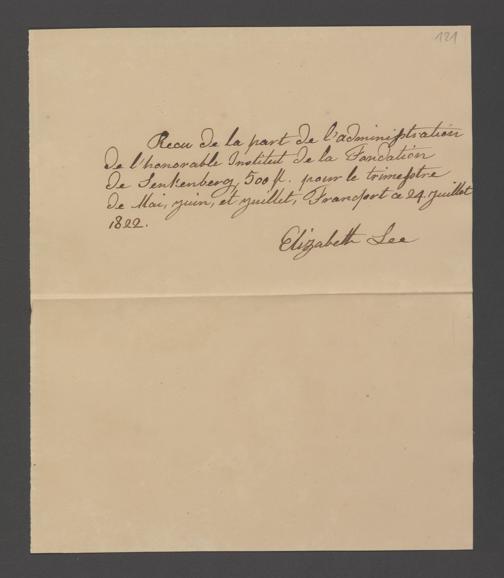 121
Recu de la part de l'administration
de l'honorable Institut de la Fondation
de Senkenberg, 500 fl. pour le trimestre
de Mai, juin, et juillet, Francfort ce 24 juillet
1822.
Elizabeth Lee